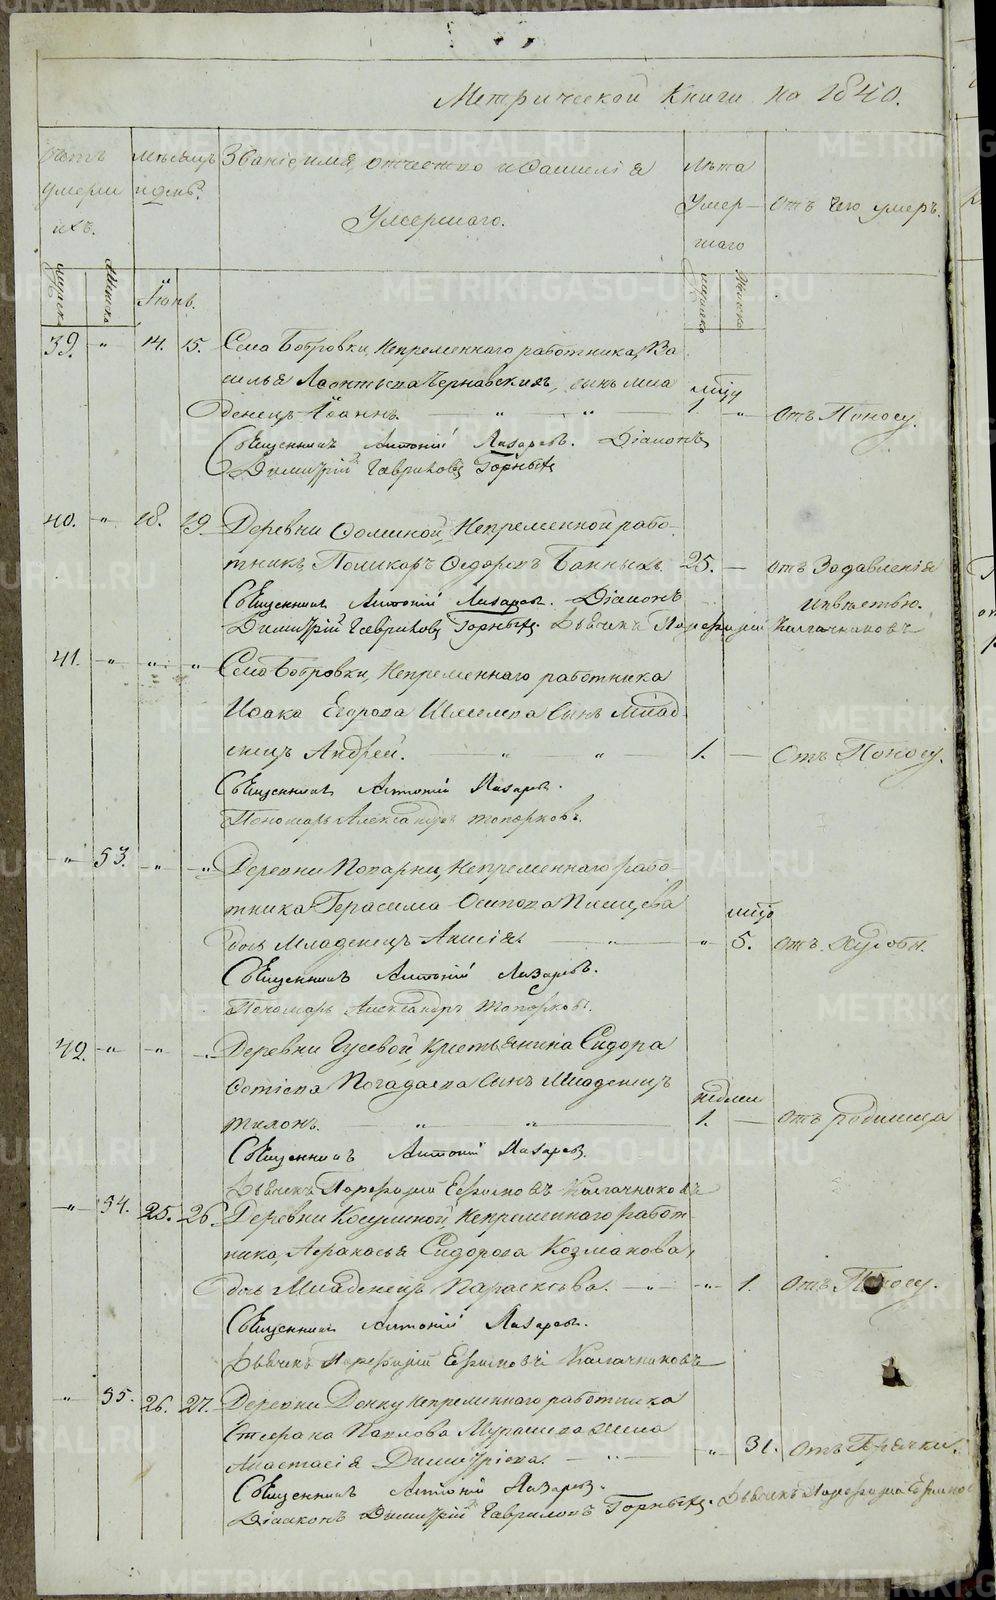 Метрической Книги на 1840.
Счетъ умершихъ.
Мѣсяцъ и день.
Званіе имя, отчество и Фамилія Умершаго.
Лѣта Умершаго
отъ чего умеръ.
мужска
женска
Іюнь.
мужска
женска
39. " 14. 15. Села Бобровки, Непременнаго работника, Ва
силья Леонтьева Чернавскихъ, сынъ мла
денецъ Іоаннъ. " " мцъ 1 " отъ Поносу.
Священникъ Антоній Лазаревъ. Діаконъ
Димитрій Гавриловъ Горныхъ
40. " 18. 19. Деревни Фоминой, Непременной рабо-
тникъ, Поликарпъ Федоровъ Банныхъ. 25. — отъ Задавленія
Священникъ Антоній Лазаревъ. Діаконъ
Димитрій Гавриловъ Горныхъ. Дьячекъ Порфирій Колачниковъ
41. " " " Села Бобровки, Непременнаго работника
Исака Егорова Сынъ Млад
енецъ Андрей. " " 1. — Отъ Поносу.
Священникъ Антоній Лазаревъ.
Пономарь Александръ Топорковъ.
" 53. " " Деревни Непременнаго рабо-
тника Герасима Осипова
дочь Младенецъ Анисія. " " мцъ 5. отъ Худобы.
Священникъ Антоній Лазаревъ.
Пономарь Александръ Топорковъ.
42. " " " Деревни Гусевой, Крестьянина Сидора
Фотіева Погадаева Сынъ Младенецъ
Тихонъ. " " недели 1. — отъ родимца
Священникъ Антоній Лазаревъ.
Дьячекъ Порфирій Ефимовъ Колачниковъ
" 54. 25. 26. Деревни Косулиной, Непременнаго работ-
ника, Афанасья Сидорова Козманова,
дочь Младенецъ Параскева. " " 1. отъ Поносу.
Священникъ Антоній Лазаревъ.
Дьячекъ Порфирій Ефимовъ Колачниковъ
" 55. 26. 27. Деревни непременнаго работника
Стефана Павлова жена
Анастасія Димитріева. " " 31. отъ Горячки.
Священникъ Антоній Лазаревъ.
Діаконъ Димитрій Гавриловъ Горныхъ. Дьячекъ Порфирій Ефимов
METRIKI.GASO-URAL.RU